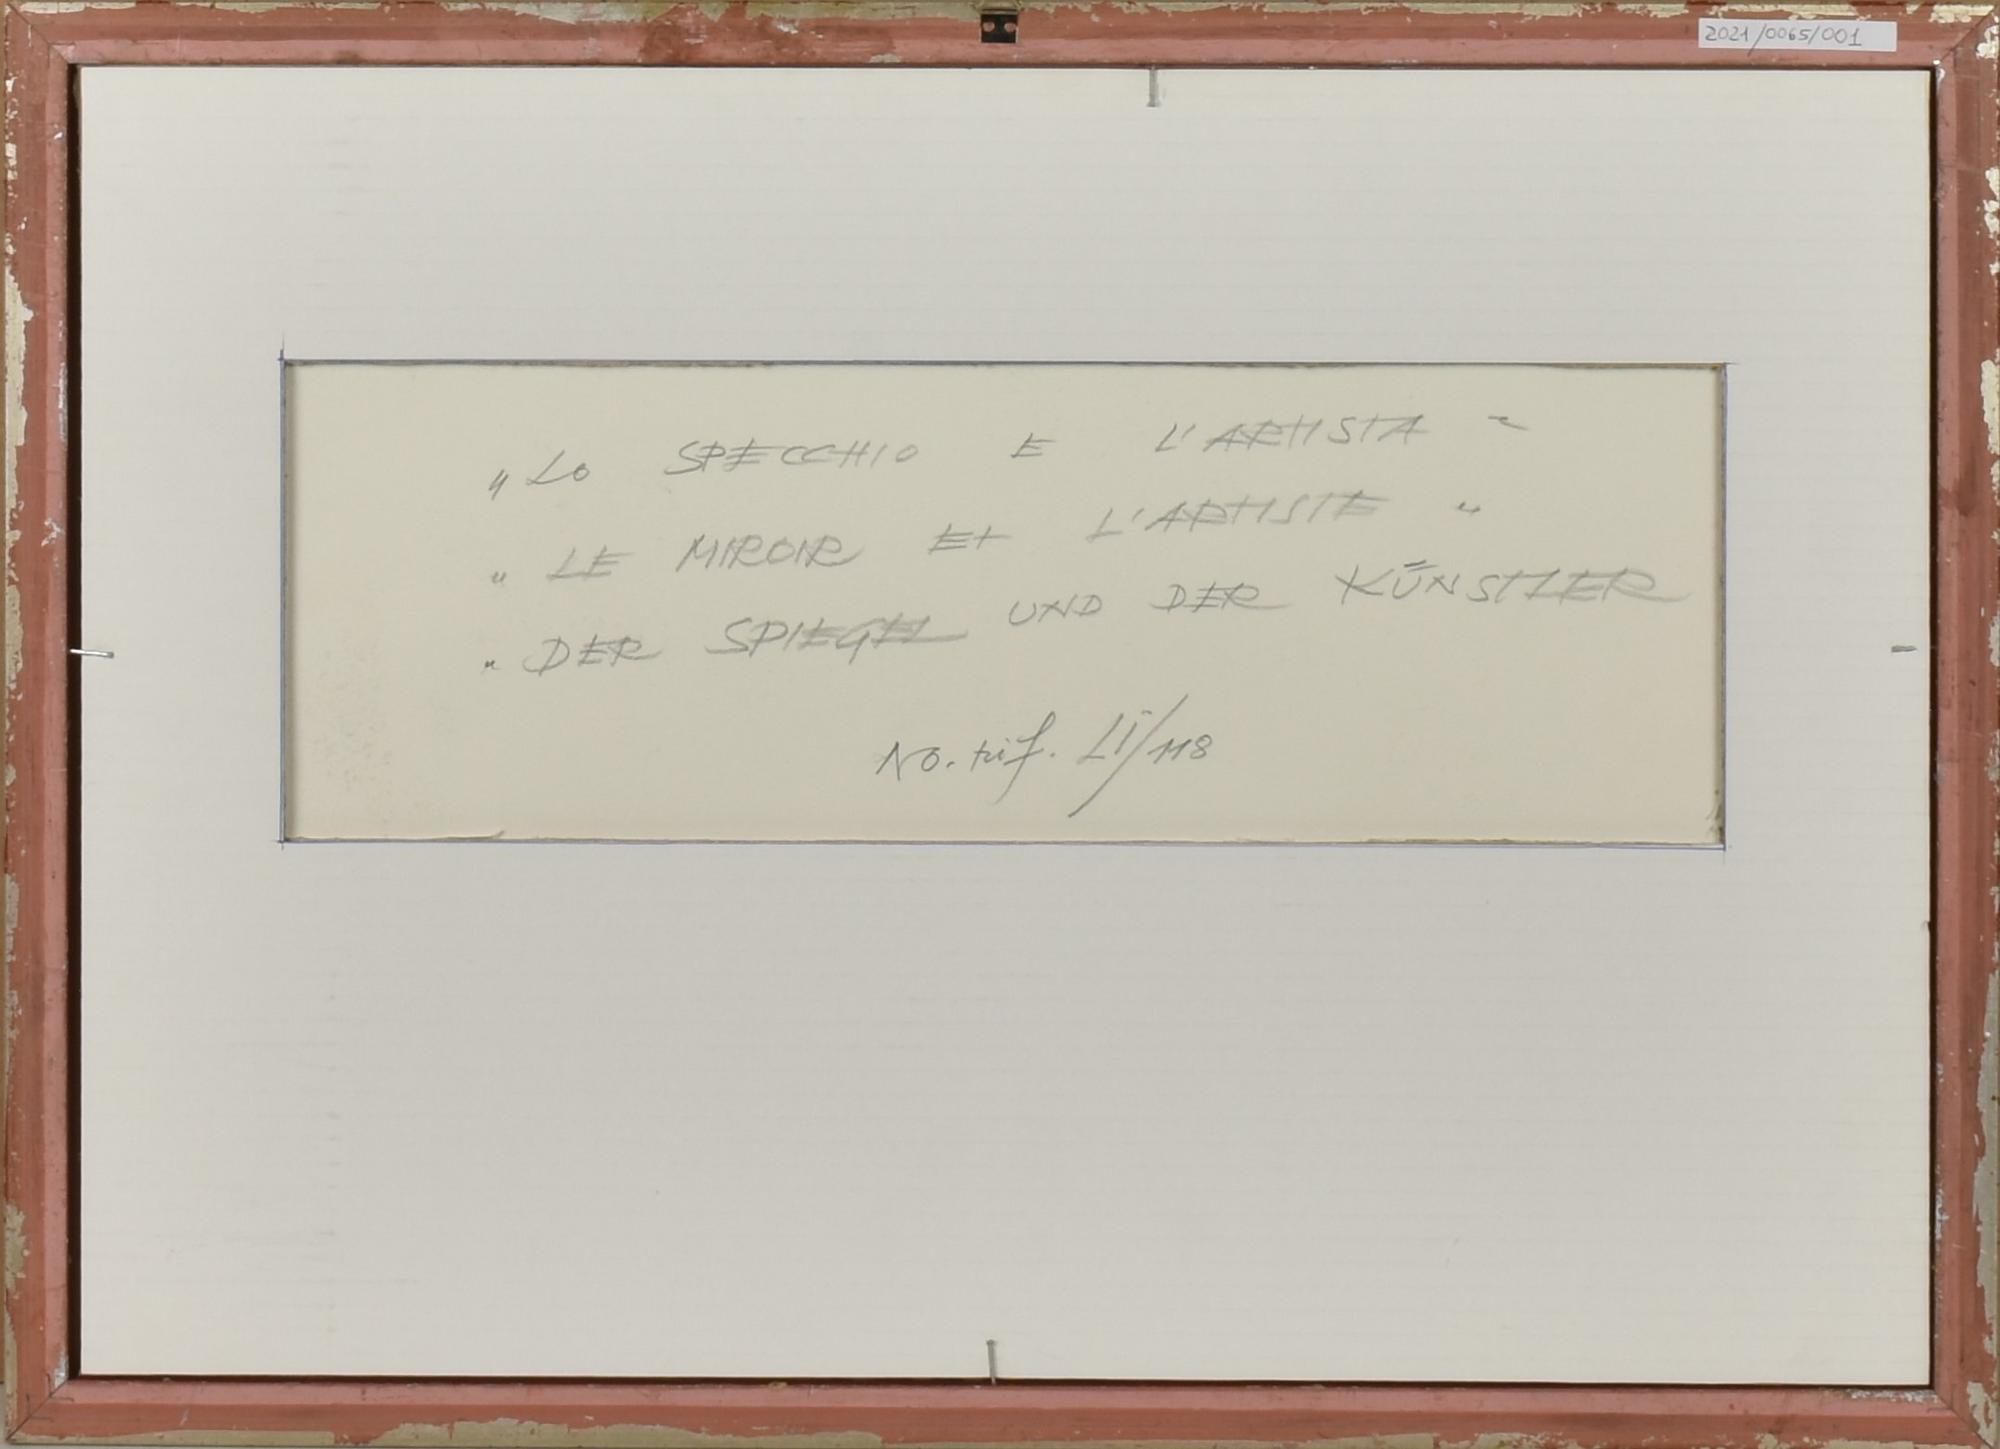 2021/0065/001
„LO SPECCHIO E L'ARTISTA"
"LE MIROIR ET L'ARTISTE"
"DER SPIEGEL UND DER KÜNSTLER
No. rif. Li/118